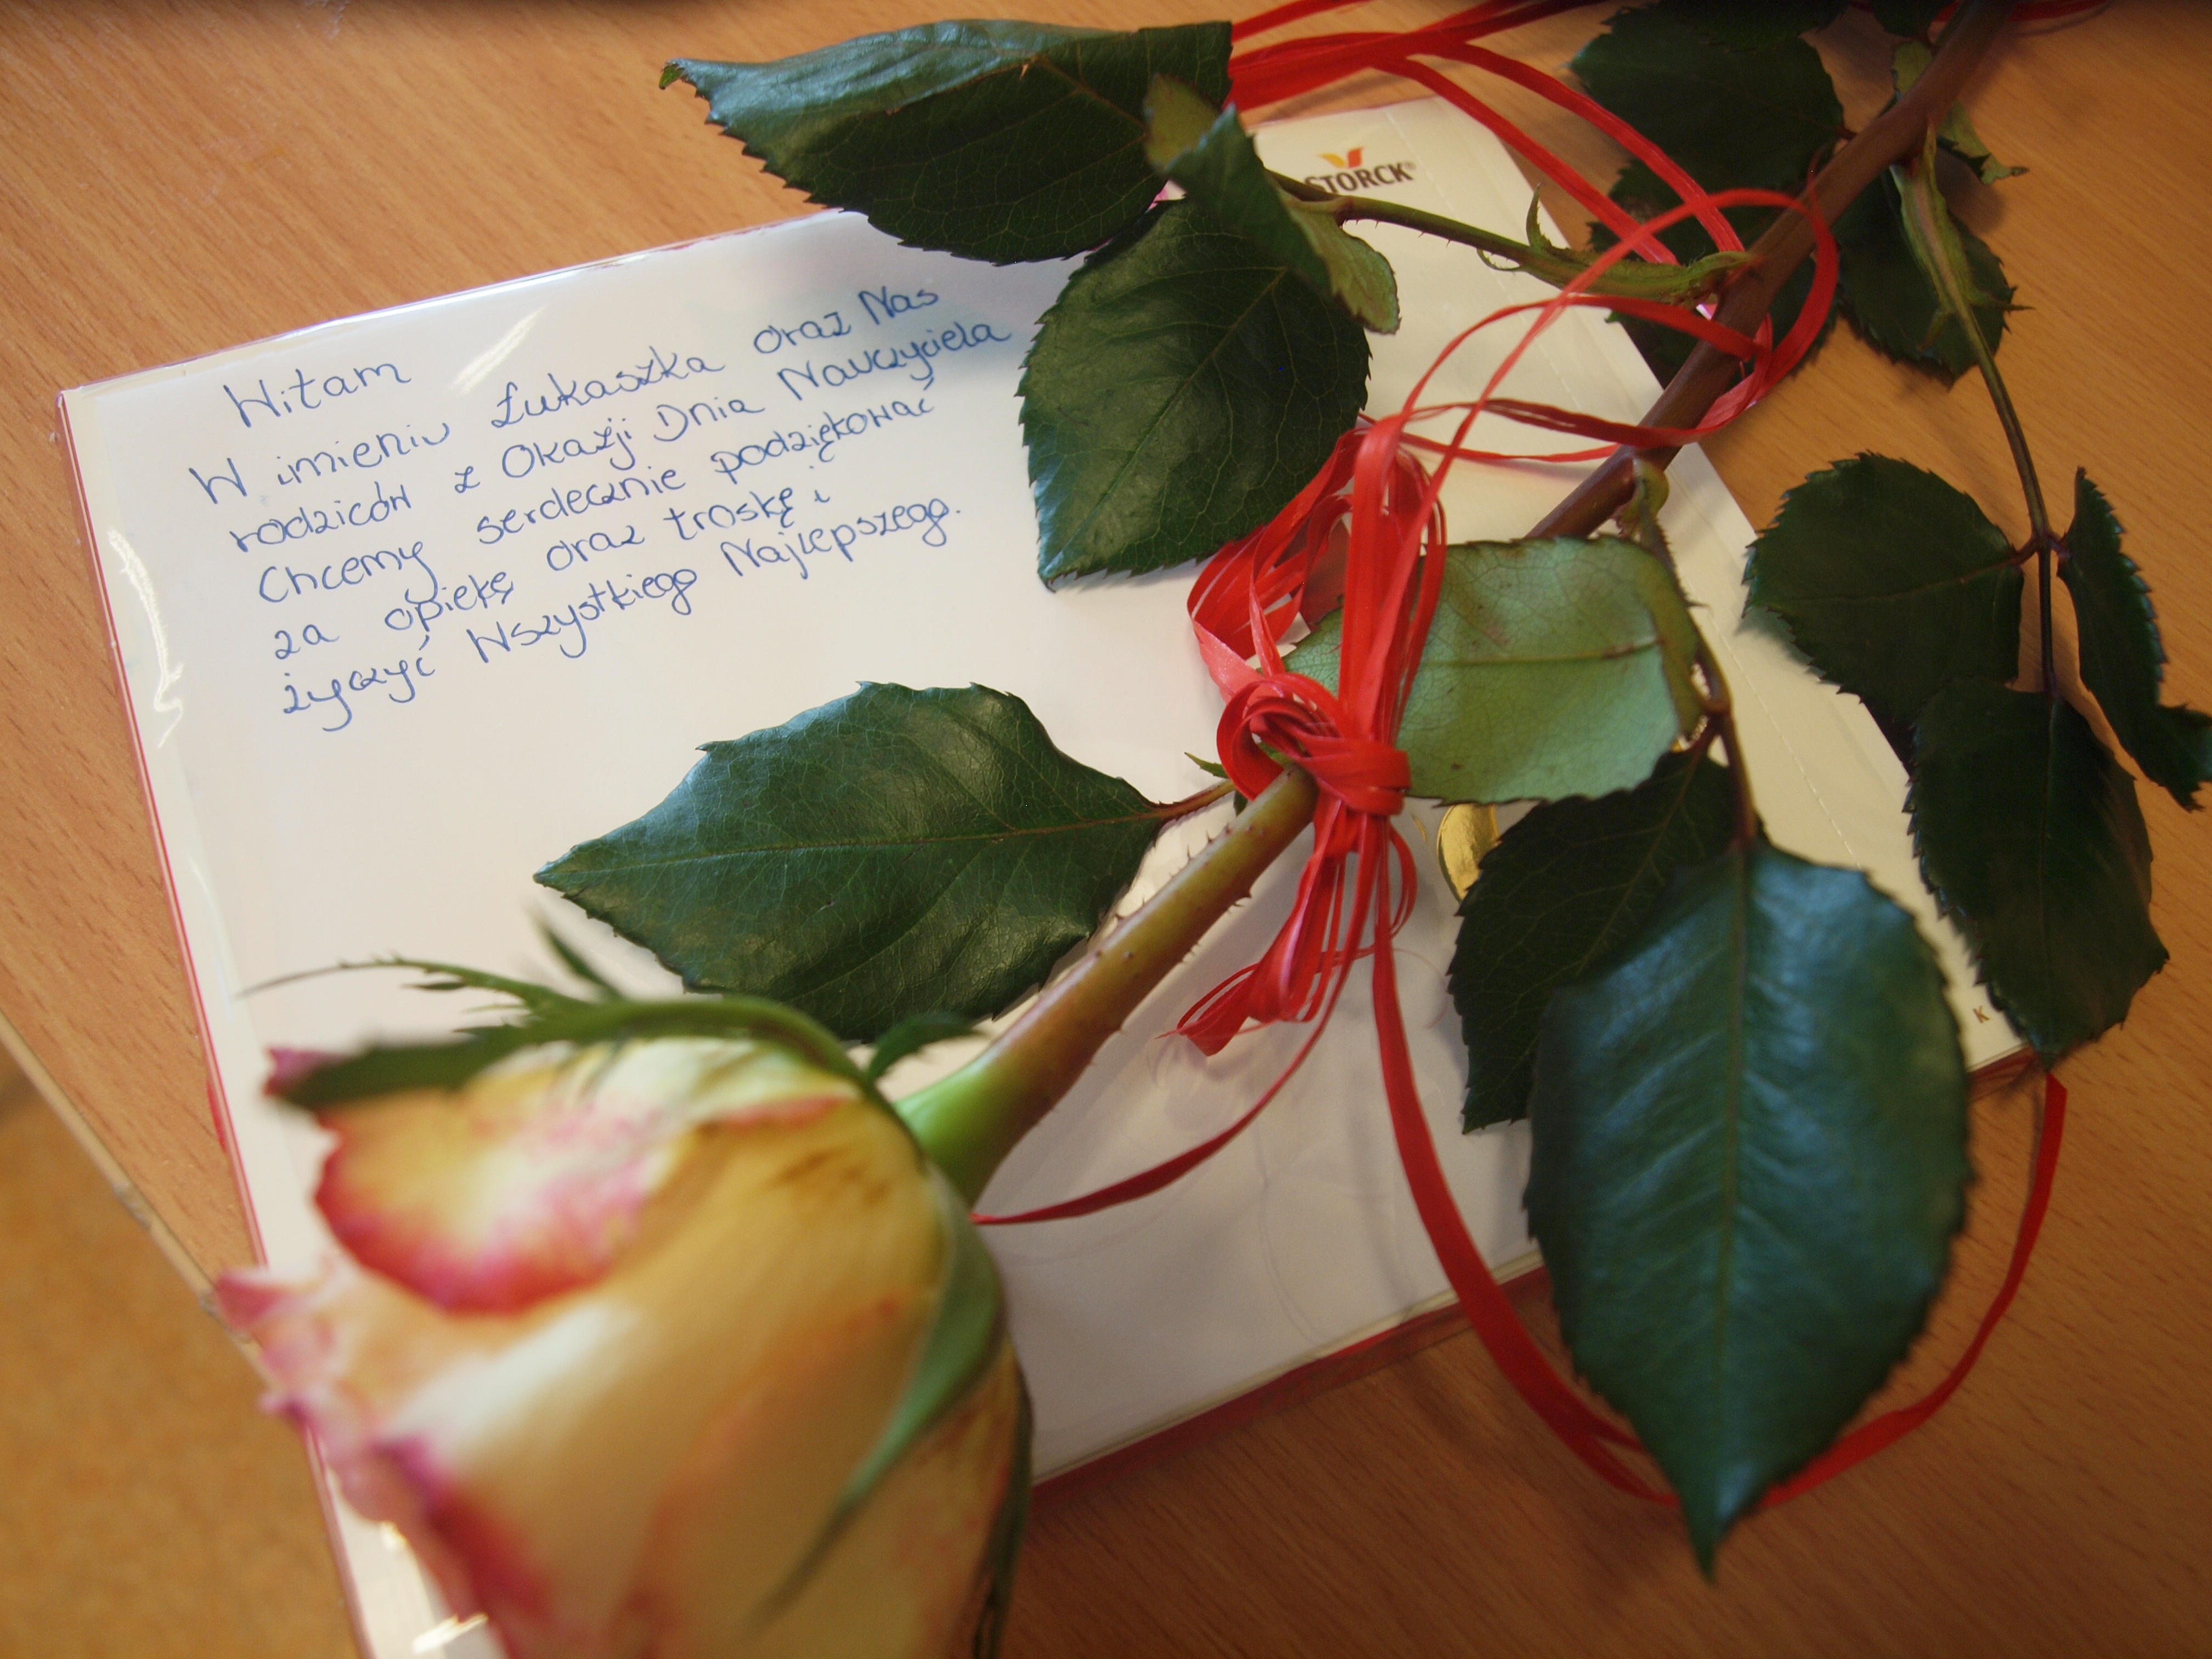 Witam
W imieniu Łukaszka oraz Nas
rodziców z Okazji Dnia Nauczyciela
Chcemy serdecznie podziękować
za opiekę oraz troskę i
życzyć Wszystkiego Najlepszego.
STORCK®
K